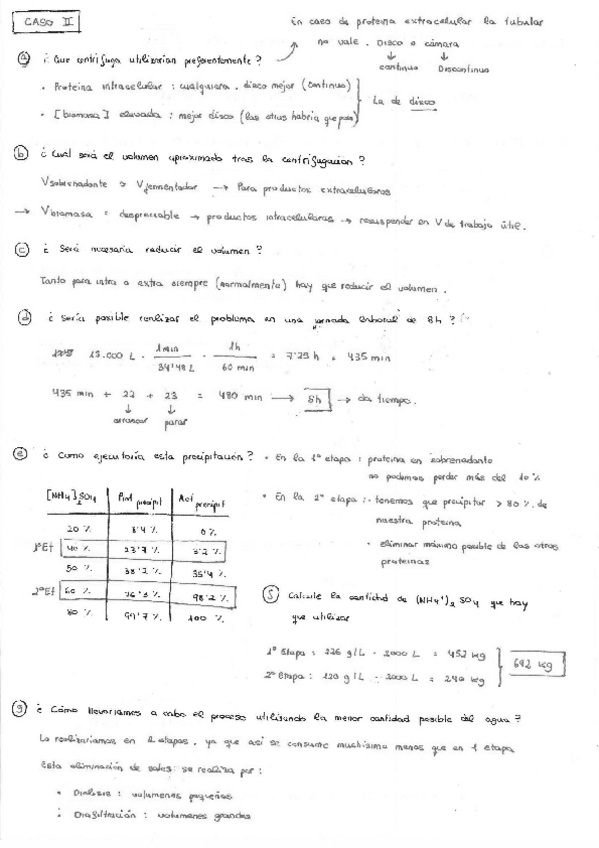 CASO II
En caso de proteina extracelular la tubular
no vale. Disco o cámara
continuo Discontinuo
a) ¿Que centrifuga utilizarian preferentemente?
• Proteina intracelular: cualquiera, disco mejor (continuo)
• [biomasa] elevada: mejor disco (las otras habria que parar)
La de disco
b) ¿Cual será el volumen aproximado tras la centrifugacion?
Vsobrenadante Vfermentador → Para productos extracelulares
→ Vbiomasa = despreciable → productos intracelulares → resuspender en V de trabajo útil.
c) ¿Será necesaria reducir el volumen?
Tanto para intra o extra siempre (normalmente) hay que reducir el volumen.
d) ¿Seria posible realizar el problema en una jornada laboral de 8h?
15.000 L · 1min / 34'48 L · 1h / 60 min = 7'25 h = 435 min
435 min + 22 + 23 = 480 min → 8h → da tiempo.
arrancar parar
e) ¿Como ejecutoria esta precipitación?
• En la 1ª etapa: proteina en sobrenadante
no podemos perder más del 10%
• En la 2ª etapa: · tenemos que precipitar > 80% de
nuestra proteina
· eliminar máximo posible de las otras
proteinas
[NH4]2SO4 Prot precipit Act precipit
20% 8'4% 0%
1ªEt 40% 23'7% 3'2%
50% 38'2% 35'4%
2ªEt 60% 76'3% 98'2%
80% 99'7% 100%
f) Calcule la cantidad de (NH4+)2 SO4 que hay
que utilizar
1ª Etapa: 226 g/L · 2000 L = 452 kg
2ª Etapa: 120 g/L · 2000 L = 240 kg
692 kg
g) ¿Cómo llevariamos a cabo el proceso utilizando la menor cantidad posible del agua?
Lo realizariamos en 2 etapas, ya que asi se consume muchisimo menos que en 1 etapa
Esta eliminación de sales se realiza por:
• Dialisis: volumenes pequeños
• Diafiltración: volumenes grandes